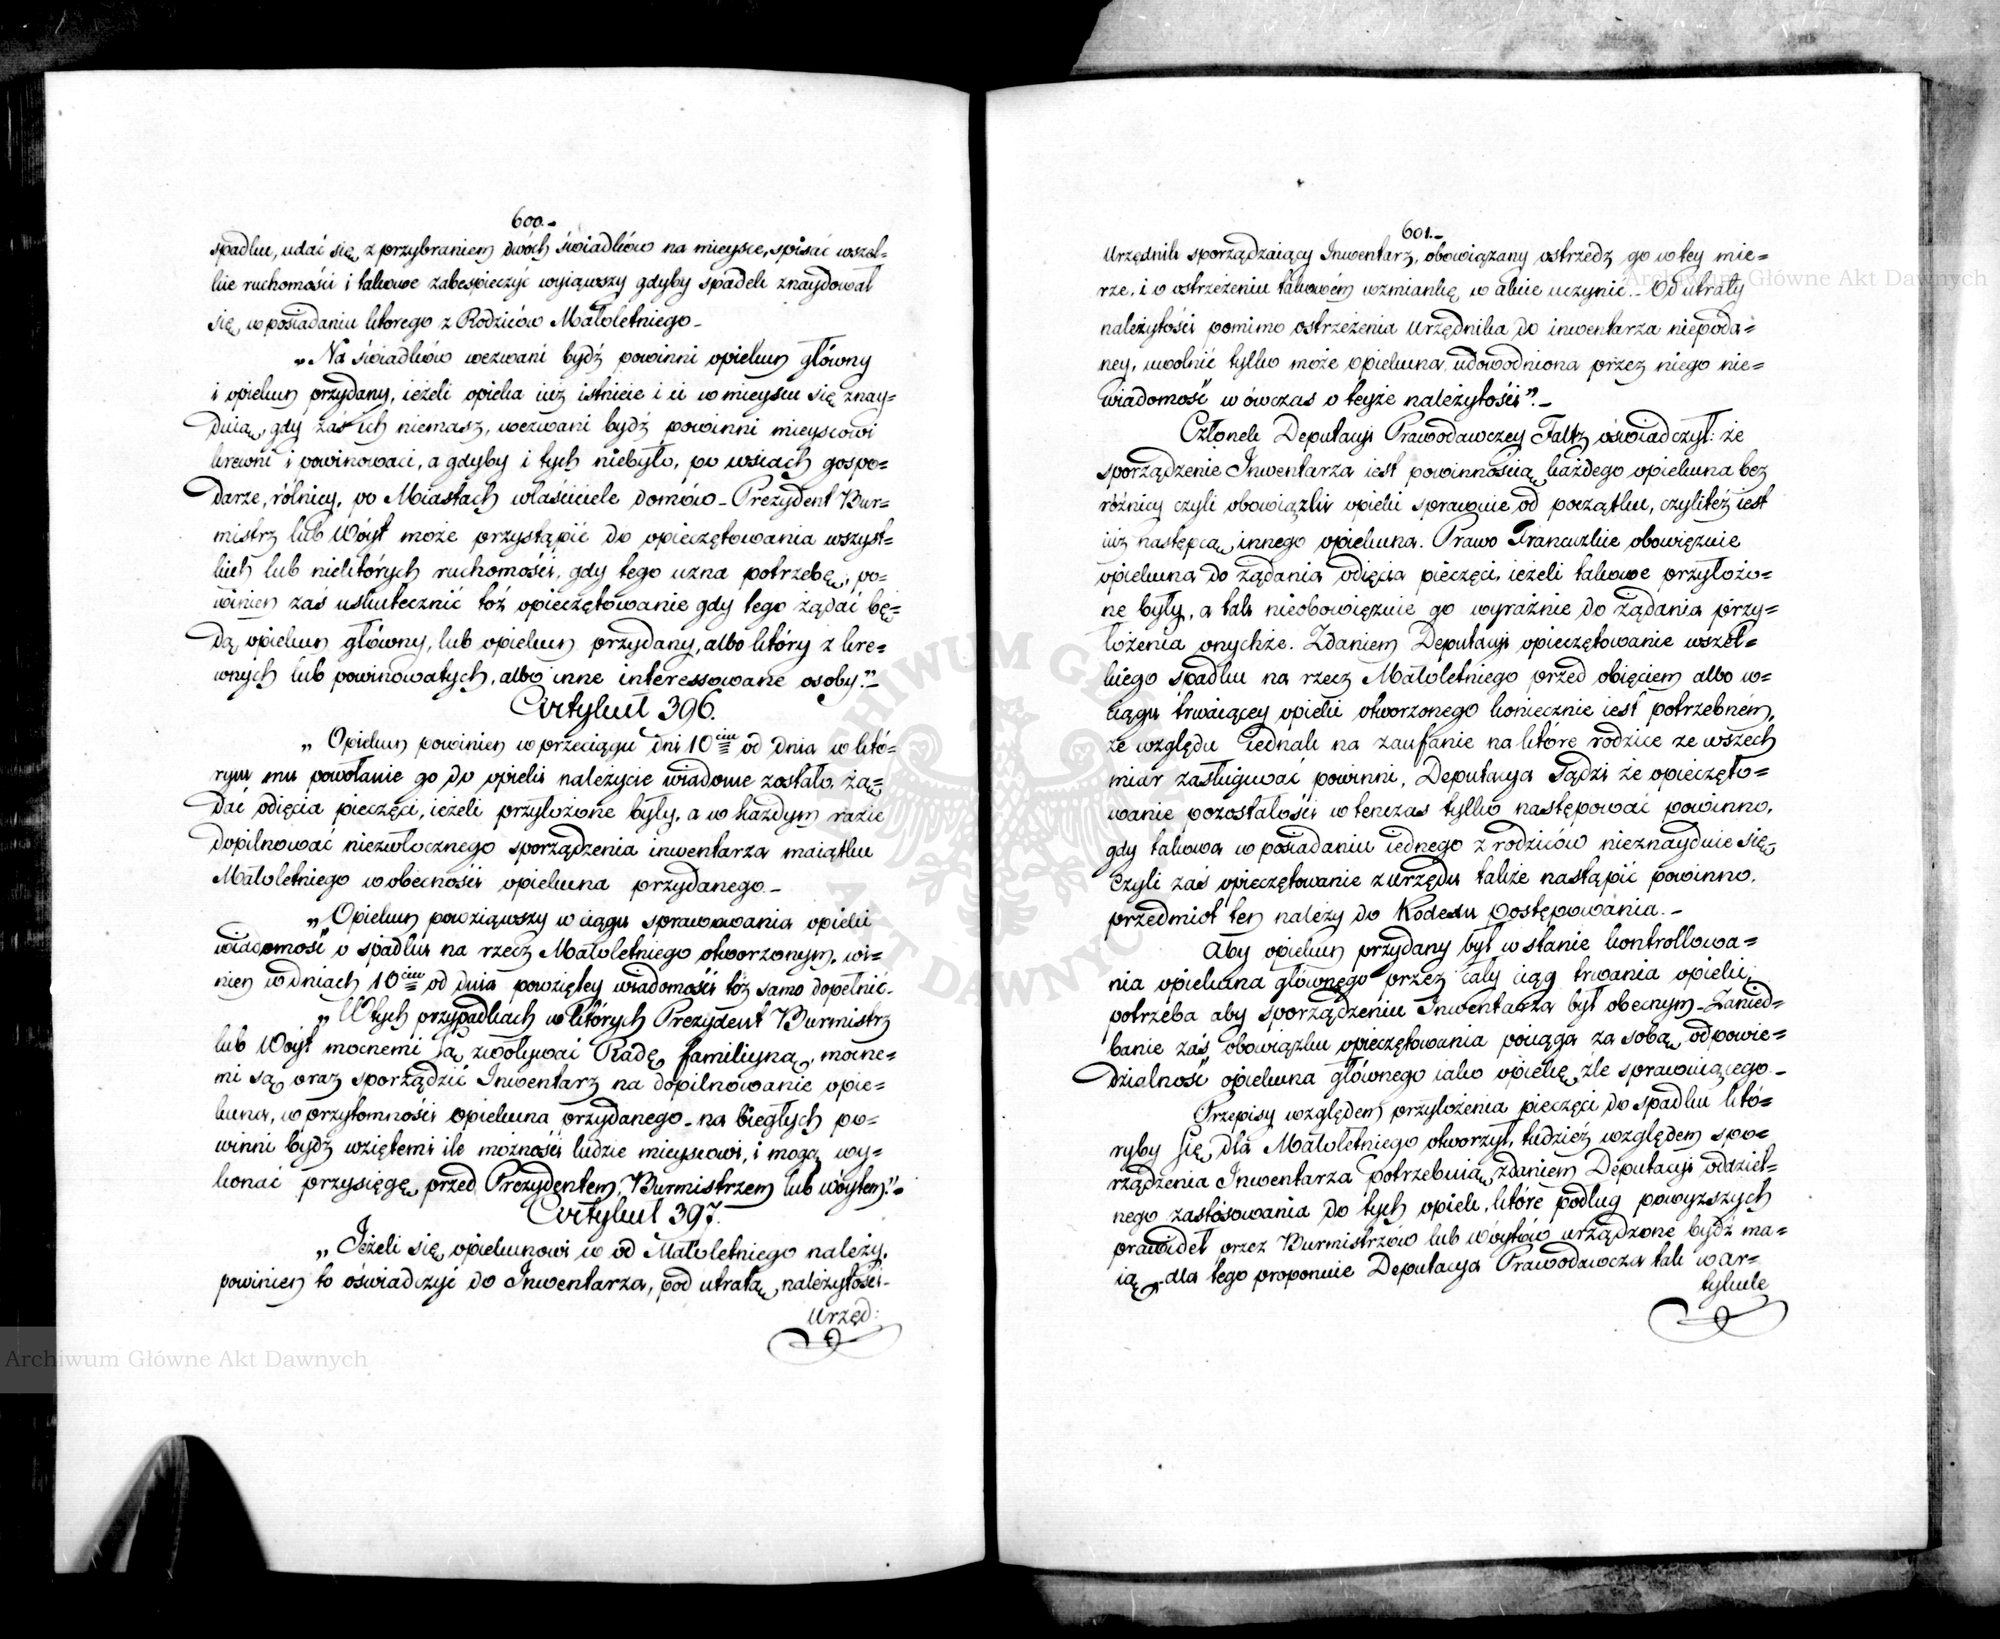 600.
spadku, udać się z przybraniem dwóch świadków na mieysce, spisać wszel=
kie ruchomości i takowe zabespieczyć wyiąwszy gdyby spadek znaydował
się w posiadaniu którego z Rodziców Małoletniego.
„Na świadków wezwani bydź powinni opiekun główny
i opiekun przydany, ieżeli opieka iuż istnieie i ci w mieyscu się znay=
duią, gdy zaś ich niemasz, wezwani bydź powinni mieyscowi
krewni i powinowaci, a gdyby i tych niebyło, po wsiach gospo=
darze, rólnicy, po Miastach właściciele domów. Prezydent Bur=
mistrz lub Wóyt może przystąpić do opieczętowania wszyst=
kich lub niektórych ruchomości, gdy tego uzna potrzebę, po=
winien zaś uskutecznić toż opieczętowanie gdy tego żądać bę=
dą opiekun główny, lub opiekun przydany, albo który z kre=
wnych lub powinowatych, albo inne interessowane osoby."
Artykuł 396.
„ Opiekun powinien w przeciągu dni 10ciu od dnia w któ=
rym mu powołanie go do opieki należycie wiadome zostało, żą=
dać odięcia pieczęci, ieżeli przyłożone były, a w każdym razie
dopilnować niezwłocznego sporządzenia inwentarza maiątku
Małoletniego w obecności opiekuna przydanego.
„ Opiekun powziąwszy w ciągu sprawowania opieki
wiadomość o spadku na rzecz Małoletniego otworzonym, wi=
nien w dniach 10ciu od dnia powziętey wiadomości toż samo dopełnić.
„ W tych przypadkach w których Prezydent Burmistrz
lub Wóyt mocnemi są zwoływać Radę familiyną, mocne=
mi są oraz sporządzić Inwentarz na dopilnowanie opie=
kuna, w przytomności opiekuna przydanego. na biegłych po=
winni bydź wziętemi ile możności ludzie mieyscowi, i mogą wy=
konać przysięgę przed Prezydentem, Burmistrzem lub wóytem."
Artykuł 397.
„ Jeżeli się opiekunowi co od Małoletniego należy,
powinien to oświadczyć do Inwentarza, pod utratą należytości.
Urzęd:
601.
Urzędnik sporządzaiący Inwentarz, obowiązany ostrzedz go w tey mie=
rze, i o ostrzeżeniu takowém wzmiankę w akcie uczynić. Od utraty
należytości pomimo ostrzeżenia Urzędnika do inwentarza niepoda=
ney, uwolnić tylko może opiekuna udowodniona przez niego nie=
wiadomość w ówczas o teyże należytości".
Członek Deputacyi Prawodawczey Faltz oświadczył: że
sporządzenie Inwentarza iest powinnością każdego opiekuna bez
różnicy czyli obowiązki opieki sprawuie od początku, czyliteż iest
iuż następcą innego opiekuna. Prawo Francuzkie obowięzuie
opiekuna do żądania odięcia pieczęci, ieżeli takowe przyłożo=
ne były, a tak nieobowięzuie go wyraźnie do żądania przy=
łożenia onychże. Zdaniem Deputacyi opieczętowanie wszel=
kiego spadku na rzecz Małoletniego przed obięciem albo w=
ciągu trwaiącey opieki otworzonego koniecznie iest potrzebném,
ze względu iednak na zaufanie na które rodzice ze wszech
miar zasługiwać powinni, Deputacya sądzi że opieczęto=
wanie pozostałości wtenczas tylko następować powinno,
gdy takowa w posiadaniu iednego z rodziców nieznayduie się,
czyli zaś opieczętowanie z urzędu także nastąpić powinno,
przedmiot ten należy do Kodexu Postępowania.
Aby opiekun przydany był w stanie kontrollowa=
nia opiekuna głównego przez cały ciąg trwania opieki,
potrzeba aby sporządzeniu Inwentarza był obecnym. Zanied=
banie zaś obowiązku opieczętowania pociąga za sobą odpowie=
dzialność opiekuna głównego iako opiekę źle sprawuiącego.
Przepisy względem przyłożenia pieczęci do spadku któ=
ryby się dla Małoletniego otworzył, tudzież względem spo=
rządzenia Inwentarza potrzebuią zdaniem Deputacyi oddziel=
nego zastósowania do tych opiek, które podług powyższych
prawideł przez Burmistrzów lub wóytów urządzone bydź ma=
ią. dla tego proponuie Deputacya Prawodawcza tak w Ar=
tykule
Archiwum Główne Akt Dawnych
Archiwum Główne Akt Dawnych
ARCHIWUM GŁÓWNE AKT DAWNYCH